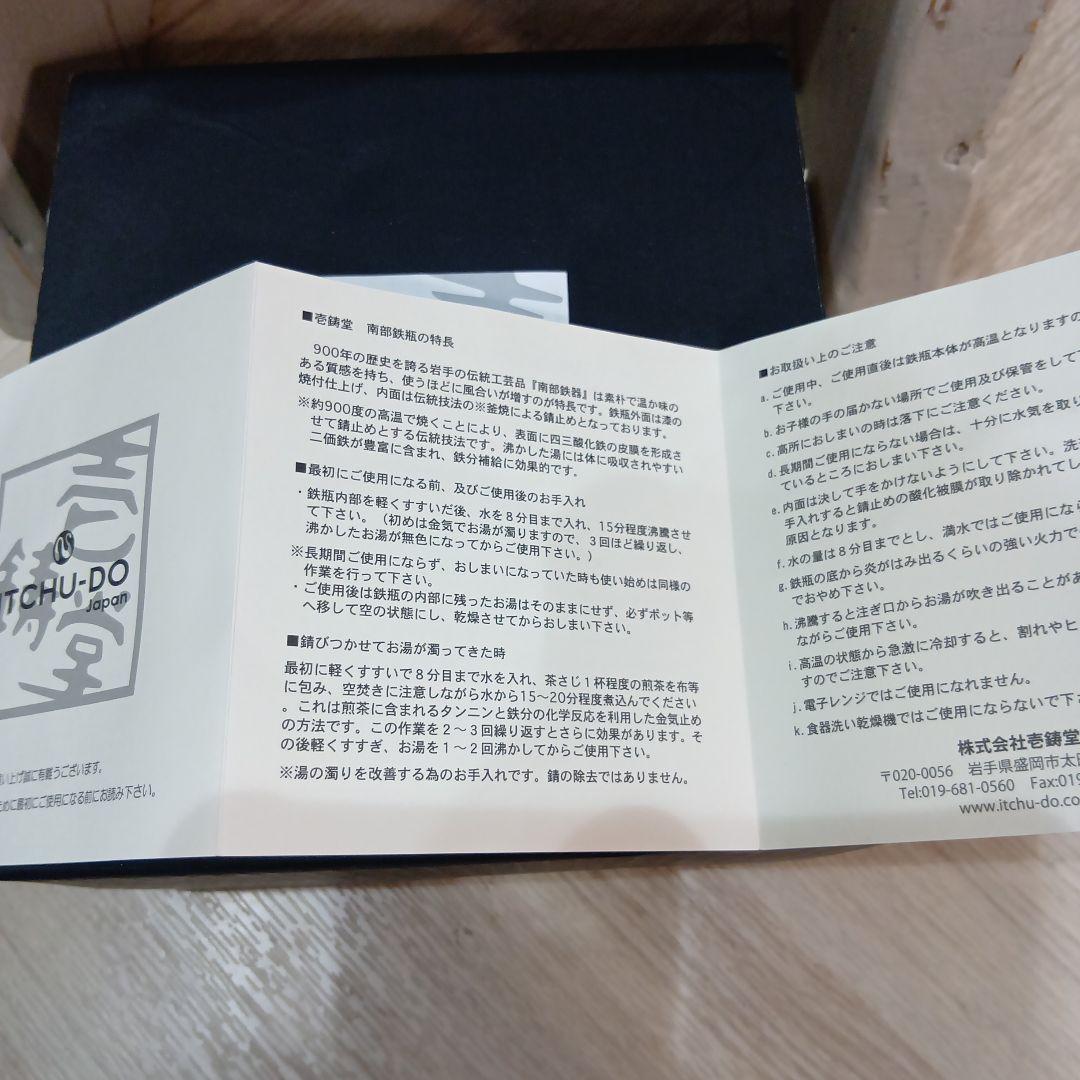 ITCHU-DO
Japan
い上げ誠に有難うございます。
ために最初にご使用になる前にお読み下さい。
■壱鋳堂　南部鉄瓶の特長
900年の歴史を誇る岩手の伝統工芸品『南部鉄器』は素朴で温か味の
ある質感を持ち、使うほどに風合いが増すのが特長です。鉄瓶外面は漆の
焼付仕上げ、内面は伝統技法の※釜焼による錆止めとなっております。
※約900度の高温で焼くことにより、表面に四三酸化鉄の皮膜を形成さ
せて錆止めとする伝統技法です。沸かした湯には体に吸収されやすい
二価鉄が豊富に含まれ、鉄分補給に効果的です。
■最初にご使用になる前、及びご使用後のお手入れ
・鉄瓶内部を軽くすすいだ後、水を８分目まで入れ、15分程度沸騰させ
て下さい。（初めは金気でお湯が濁りますので、３回ほど繰り返し、
沸かしたお湯が無色になってからご使用下さい。）
※長期間ご使用にならず、おしまいになっていた時も使い始めは同様の
作業を行って下さい。
・ご使用後は鉄瓶の内部に残ったお湯はそのままにせず、必ずポット等
へ移して空の状態にし、乾燥させてからおしまい下さい。
■錆びつかせてお湯が濁ってきた時
最初に軽くすすいで８分目まで水を入れ、茶さじ１杯程度の煎茶を布等
に包み、空焚きに注意しながら水から15～20分程度煮込んでください
。これは煎茶に含まれるタンニンと鉄分の化学反応を利用した金気止め
の方法です。この作業を２～３回繰り返すとさらに効果があります。そ
の後軽くすすぎ、お湯を１～２回沸かしてからご使用下さい。
※湯の濁りを改善する為のお手入れです。錆の除去ではありません。
■お取扱い上のご注意
a.ご使用中、ご使用直後は鉄瓶本体が高温となりますの
下さい。
b.お子様の手の届かない場所でご使用及び保管をして下
c.高所におしまいの時は落下にご注意ください。
d.長期間ご使用にならない場合は、十分に水気を取り
ているところにおしまい下さい。
e.内面は決して手をかけないようにして下さい。洗
手入れすると錆止めの酸化被膜が取り除かれてし
原因となります。
f.水の量は８分目までとし、満水ではご使用になら
g.鉄瓶の底から炎がはみ出るくらいの強い火力で
でおやめ下さい。
h.沸騰すると注ぎ口からお湯が吹き出ることがあ
ながらご使用下さい。
i.高温の状態から急激に冷却すると、割れやヒ
すのでご注意下さい。
j.電子レンジではご使用になれません。
k.食器洗い乾燥機ではご使用にならないで下
株式会社壱鋳堂
〒020-0056　岩手県盛岡市太田
Tel:019-681-0560　Fax:019
www.itchu-do.co